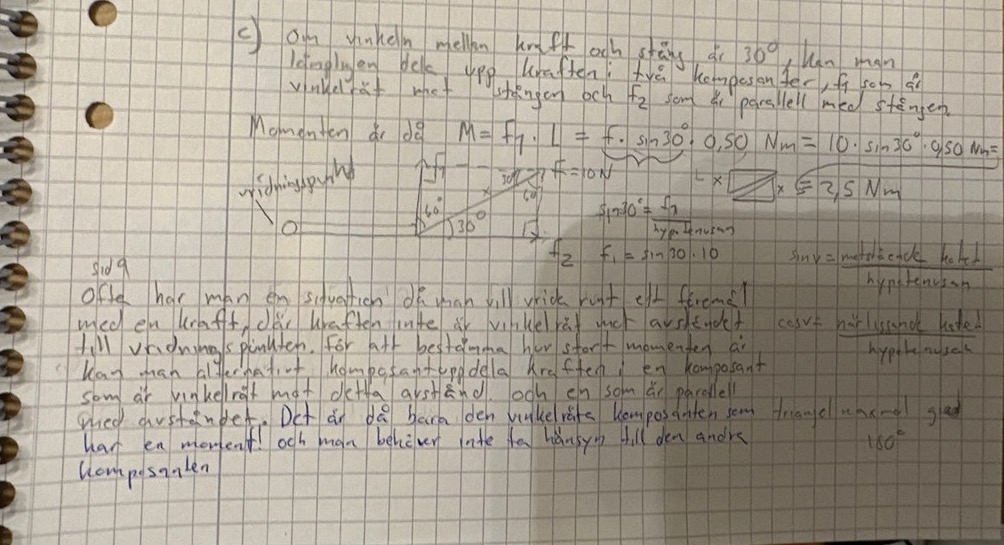 c) Om vinkeln mellan kraft och stång är 30°, kan man
lämpligen dela upp kraften i två komposanter, f1 som är
vinkelrät mot stången och f2 som är parallell med stången.
Momenten är då M = f1 · L = f · sin30° · 0,50 Nm = 10 · sin30° · 0,50 Nm =
= 2,5 Nm
vridningspunkt
f1
30°
F = 10N
60
60°
30°
f2
L x
x
sin30° = f1
hypotenusan
f1 = sin30 · 10
sinv = motstående katet
hypotenusan
sid 9
Ofta har man en situation då man vill vrida runt ett föremål
med en kraft, där kraften inte är vinkelrät mot avståndet
cosv = närliggande katet
till vridningspunkten. För att bestämma hur stort momenten är
hypotenusan
kan man alternativt komposantuppdela kraften i en komposant
som är vinkelrät mot detta avstånd och en som är parallell
med avståndet. Det är då bara den vinkelräta komposanten som
triangel maxmal grad
har en moment! och man behöver inte ta hänsyn till den andra
180°
komposanten